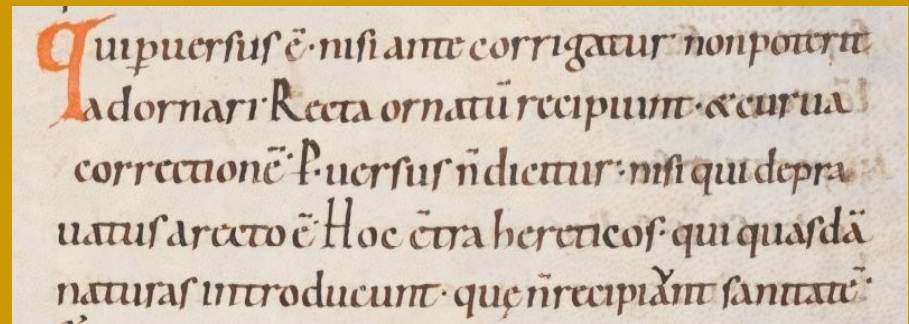 Qui ꝑuersus ē· nisi ante corrigatur· non poterit
adornari· Recta ornatū recipiunt· & curua
correctionē· P·uersus n̄ dicitur· nisi qui depra
uatus a recto ē· Hoc c̄tra hereticos· qui quasdā
naturas introducunt· quę n̄ recipiant sanitatē·